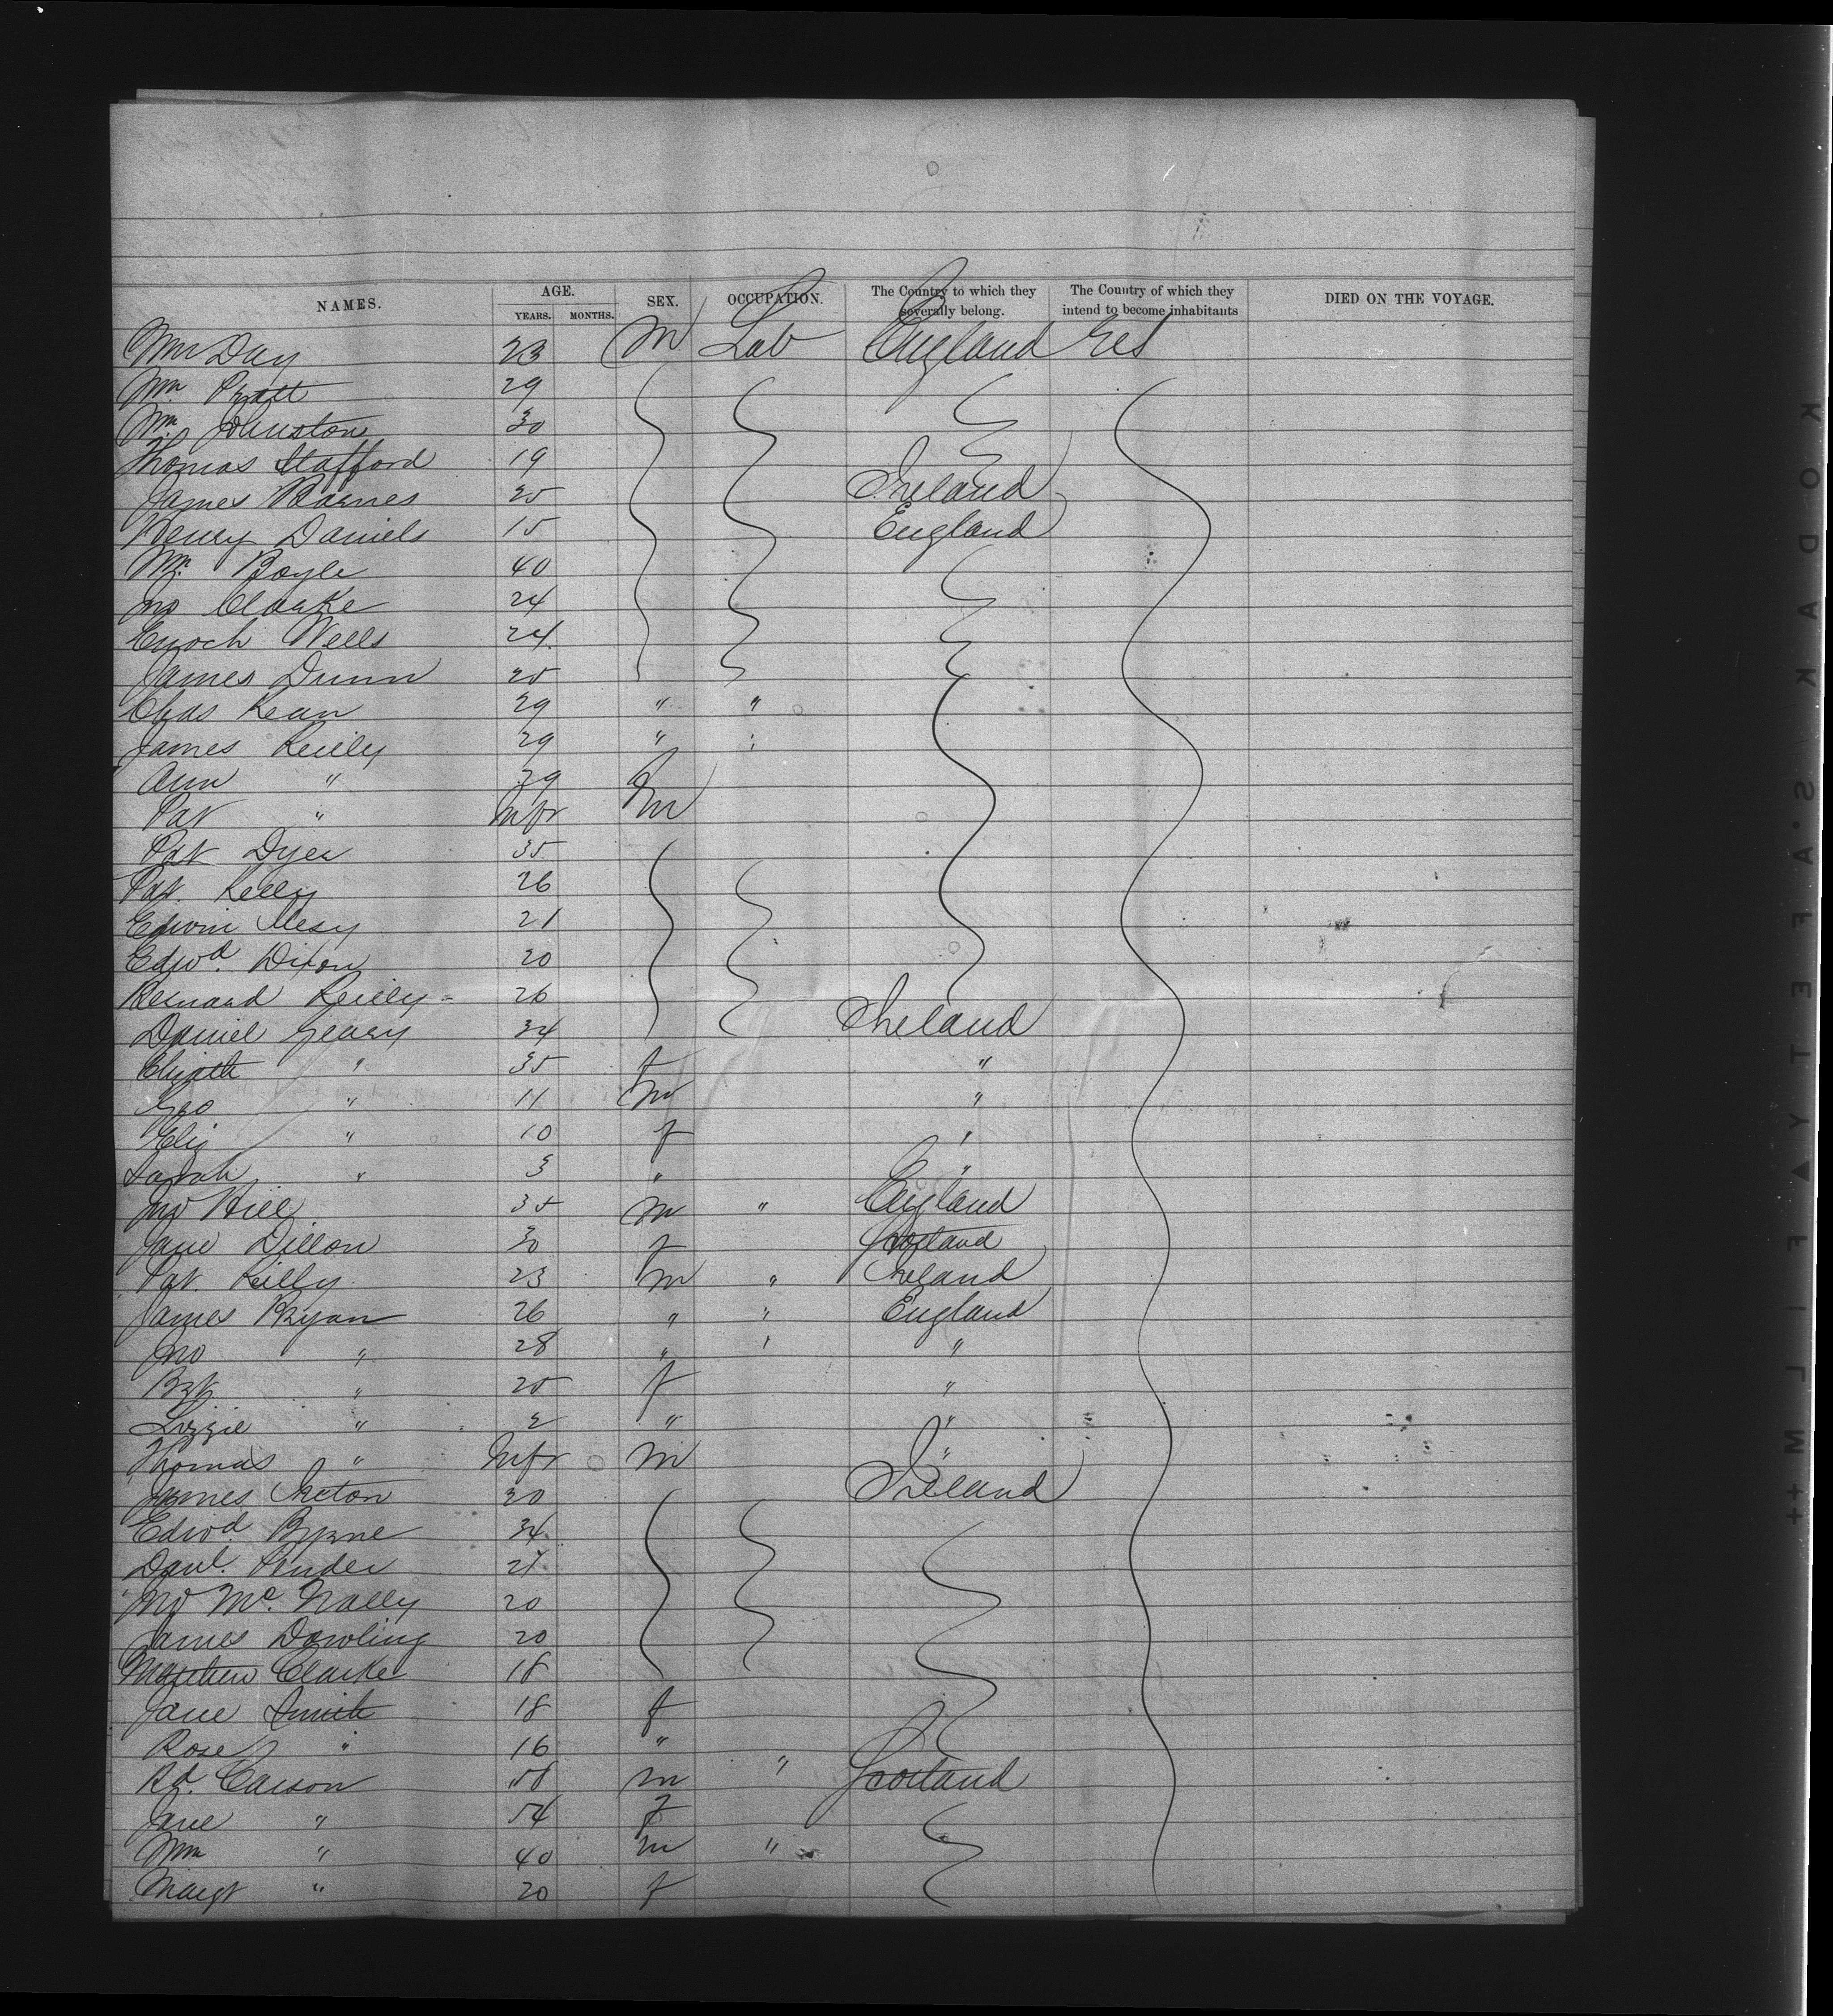 NAMES. AGE. YEARS. MONTHS. SEX. OCCUPATION. The Country to which they severally belong. The Country of which they intend to become inhabitants DIED ON THE VOYAGE.
Wm Day 23 m Lab England
Wm. Pratt 29
Wm. Johnston 30
Thomas Stafford 19
James Barnes 25 Ireland
Henry Daniels 15 England
Wm. Boyle 40
Jno Clarke 24
Enoch Wells 24
James Dunn 25
Chas Kean 29 " "
James Reilly 29 " "
Ann " 29 f
Pat " Inft m
Pat Dyer 35
Pat. Kelly 26
Edwin 21
Edwd. Dixon 20
Bernard Reilly 26
Daniel Geary 34 Ireland
Elizath " 35 f "
Geo " 11 m "
Eliz " 10 f "
Sarah " 3 " "
Jno Hill 35 m " England
Jane Dillon 30 f Scotland
Pat. Reilly 23 m " Ireland
James Ryan 26 " " England
Jno " 28 " " "
Bgt " 25 f "
Lizzie " 2 " "
Thomas " Inft m "
James 20 Ireland
Edwd. Byrne 34
Danl. Pender 27
Jno Mc. Nally 20
James Dowling 20
Matthew Clarke 18
Jane Smith 18 f
Rose " 16 "
Rd. Carson 58 m " Scotland
Jane " 54 f
Wm " 40 m "
Margt " 20 f
KODAK · SAFETY ▲ FILM ++